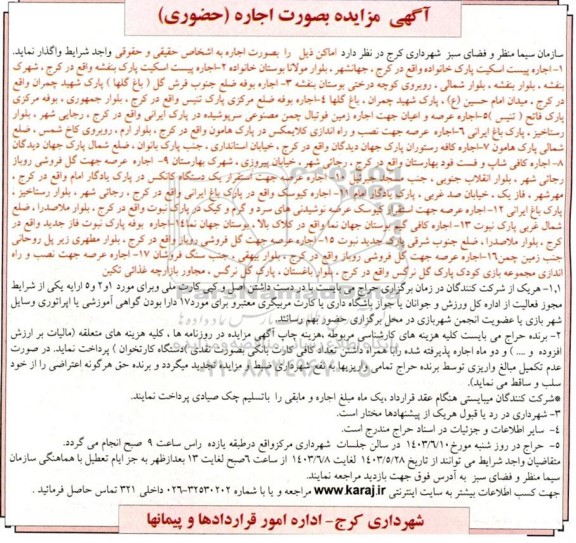 آگهی مزایده بصورت اجاره (حضوری)
سازمان سیما منظر و فضای سبز شهرداری کرج در نظر دارد اماکن ذیل را بصورت اجاره به اشخاص حقیقی و حقوقی واجد شرایط واگذار نماید.
۱- اجاره پیست اسکیت پارک خانواده واقع در کرج، جهانشهر، بلوار مولانا بوستان خانواده ۲-اجاره پیست اسکیت پارک بنفشه واقع در کرج، شهرک
بنفشه، بلوار بنفشه، بلوار شمالی، روبروی کوچه درختی بوستان بنفشه ۳- اجاره بوفه ضلع جنوب فرش گل (باغ گلها) پارک شهید چمران واقع
در کرج، میدان امام حسین (ع)، پارک شهید چمران، باغ گلها ۴-اجاره بوفه ضلع مرکزی پارک تنیس واقع در کرج، بلوار جمهوری، بوفه مرکزی
پارک فاتح (تنیس) ۵-اجاره عرصه و اعیان جهت اجاره زمین فوتبال چمن مصنوعی سرپوشیده در پارک ایرانی واقع در کرج، رجایی شهر، بلوار
رستاخیز، پارک باغ ایرانی ۶-اجاره عرصه جهت نصب و راه اندازی کلایمکس در پارک هامون واقع در کرج، بلوار ارم، روبروی کاخ شمس، ضلع
شمالی پارک هامون ۷-اجاره کافه رستوران پارک جهان دیدگان واقع در کرج، خیابان استانداری، جنب پارک بانوان، ضلع شمال پارک جهان دیدگان
۸-اجاره کافی شاپ و فست فود بهارستان واقع در کرج، رجائی شهر، خیابان پیروزی، شهرک بهارستان ۹- اجاره عرصه جهت گل فروشی روباز
رجائی شهر، بلوار انقلاب جنوبی، جنب
مهرشهر، فاز یک، خیابان صد غربی، پارک یادگار امام ۱۱-اجاره کیوسک واقع در پارک باغ ایرانی واقع در کرج، رجائی شهر، بلوار رستاخیز،
پارک باغ ایرانی ۱۲- اجاره عرصه جهت استقرار کیوسک عرضه نوشیدنی های سرد و گرم و کیک در پارک نبوت واقع در کرج، بلوار ملاصدرا، ضلع
شمال غربی پارک نبوت ۱۳-اجاره کافی گلستان جهان نما واقع در کلاک بالا، بوستان جهان نما ۱۴-اجاره بوفه پارک نبوت فاز جدید واقع در
کرج، بلوار ملاصدرا، ضلع جنوب شرقی پارک جدید نبوت ۱۵-اجاره عرصه جهت گل فروشی روباز واقع در کرج، بلوار مطهری زیر پل روحانی
جنب زمین چمن ۱۶-اجاره عرصه جهت گل فروشی روباز واقع در کرج، بلوار بیهقی، جنب سنگ فروشان ۱۷-اجاره عرصه جهت نصب و راه
اندازی مجموعه بازی کودک پارک گل نرگس واقع در کرج، باغستان، پارک گل نرگس، مجاور بازارچه غذائی نگین
۱،۱- هریک از شرکت کنندگان در زمان برگزاری حراج می بایست با در دست داشتن اصل و کپی کارت ملی وبرای مورد ۱و۲ و۵ ارایه یکی از شرایط
مجوز فعالیت از اداره کل ورزش و جوانان یا جواز باشگاه داری یا کارت مربیگری معتبر و برای مورد۱۷ دارا بودن گواهی آموزشی یا اپراتوری وسایل
شهر بازی یا عضویت انجمن شهربازی در محل برگزاری حضور بهم رسانند.
۲- برنده حراج می بایست کلیه هزینه های کارشناسی مربوطه، هزینه چاپ آگهی مزایده در روزنامه ها، کلیه هزینه های متعلقه (مالیات بر ارزش
افزوده و .... ) و دو ماه اجاره پذیرفته شده راها همراه داشتن تعداد کافی کارت بانکی بصورت نقدی (دستگاه کارتخوان) پرداخت نماید. در صورت
عدم تکمیل مبالغ واریزی توسط برنده حراج تمامی واریزیها به نفع شهرداری ضبط و مزایده تجدید میگردد و برنده حق هرگونه اعتراضی را از خود
سلب و ساقط می نماید).
*شرکت کنندگان میبایستی هنگام عقد قرارداد ،یک ماه مبلغ اجاره و مابقی را باتسلیم چک صیادی پرداخت نمایند.
۳- شهرداری در رد یا قبول هریک از پیشنهادها مختار است.
۴- سایر اطلاعات و جزئیات در اسناد حراج مندرج است.
۵- حراج در روز شنبه مورخ ۱۴۰۳/۶/۱۰ در سالن جلسات شهرداری مرکزواقع درطبقه یازده راس ساعت ۹ صبح انجام می گردد.
متقاضیان واجد شرایط می توانند از تاریخ ۱۴۰۳/۵/۲۸ لغایت ۱۴۰۳/۶/۸ از ساعت ۶صبح لغایت ۱۳ بعدازظهر به جز ایام تعطیل با هماهنگی سازمان
سیما منظر و فضای سبز به آدرس فوق جهت بازدید مراجعه نمایند.
جهت کسب اطلاعات بیشتر به سایت اینترنتی www.karaj.ir مراجعه و یا با شماره ۳۲۵۳۰۲۰۲-۰۲۶ داخلی ۳۲۱ تماس حاصل فرمائید.
شهرداری کرج- اداره امور قراردادها و پیمانها